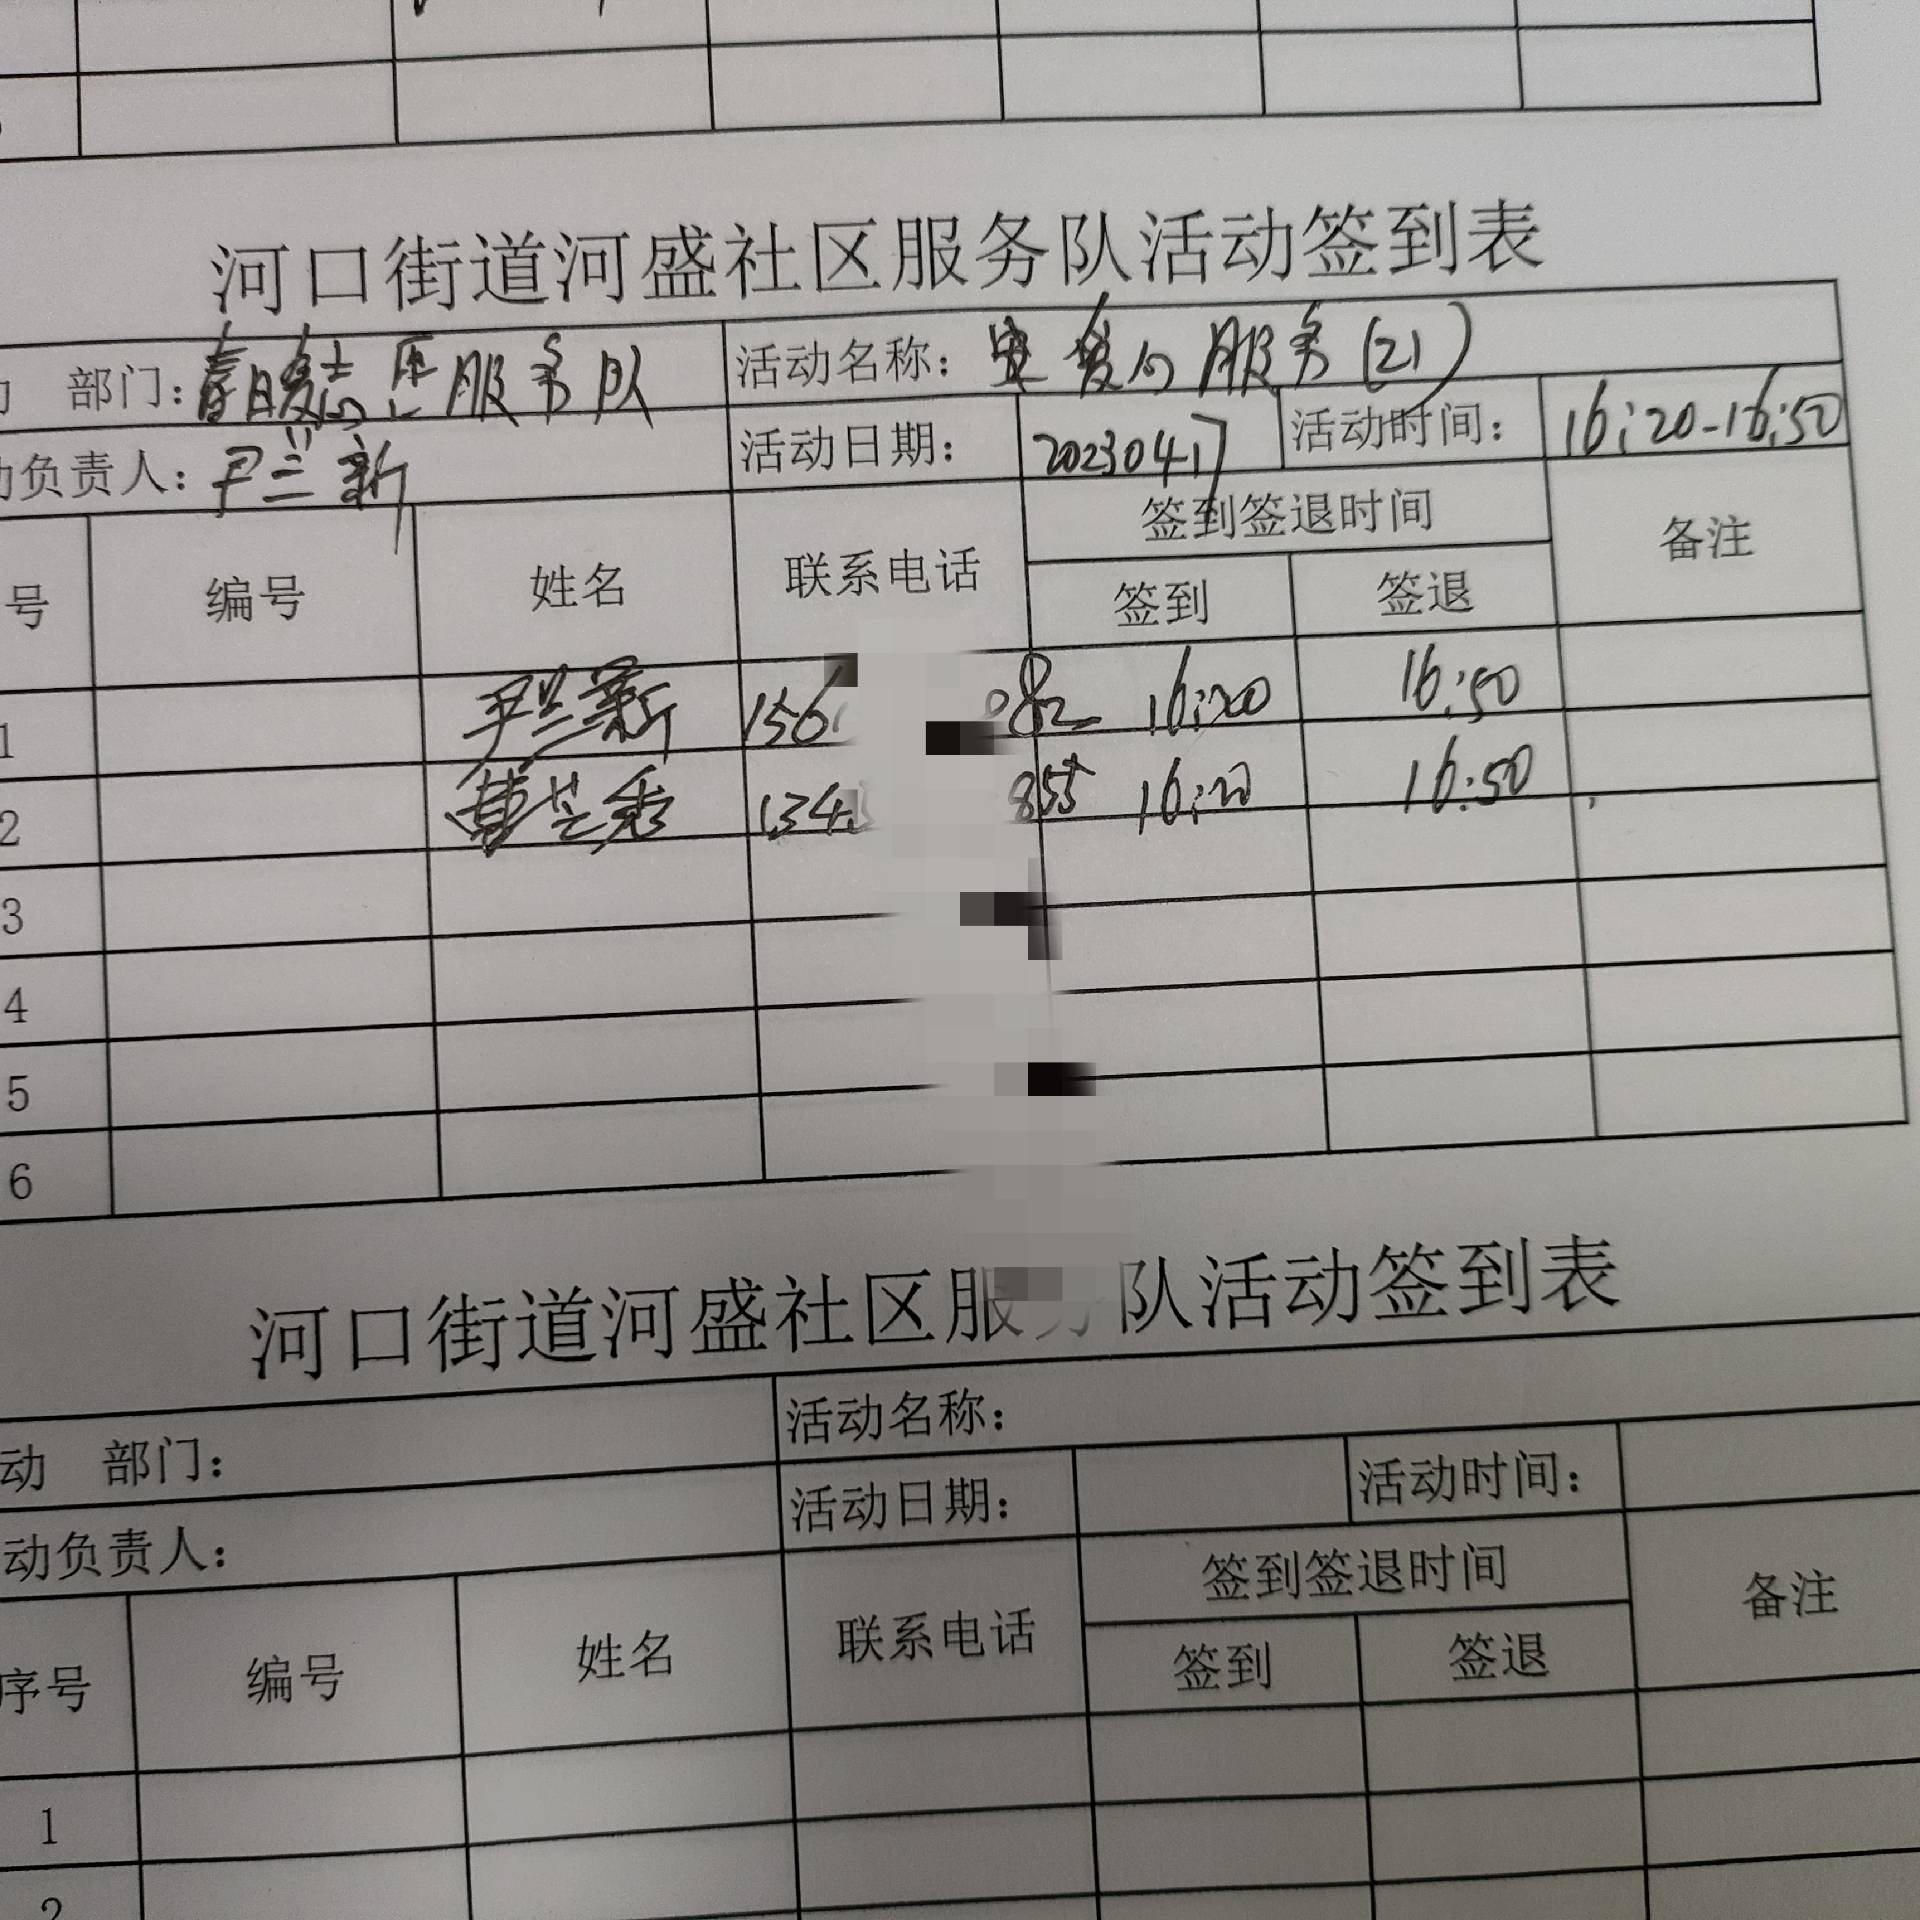 河口街道河盛社区服务队活动签到表
部门：春暖社区服务队 活动名称：服务(21)
负责人：尹兰新 活动日期：20230417 活动时间：16:20-16:50
号 编号 姓名 联系电话 签到签退时间 备注
签到 签退
1 尹兰新 156 082 16:20 16:50
2 曹芝秀 134 855 16:20 16:50
3
4
5
6
河口街道河盛社区服务队活动签到表
动 部门： 活动名称：
动负责人： 活动日期： 活动时间：
序号 编号 姓名 联系电话 签到签退时间 备注
签到 签退
1
2